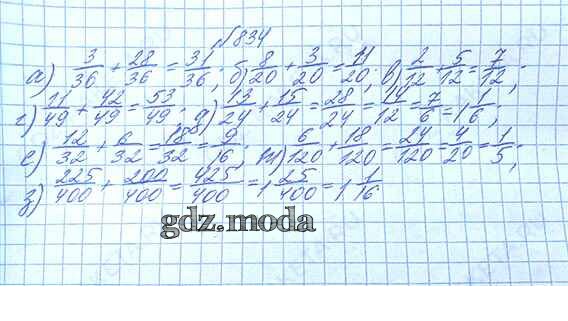 №834
а) 3/36 + 28/36 = 31/36; б) 8/20 + 3/20 = 11/20; в) 2/12 + 5/12 = 7/12;
г) 11/49 + 42/49 = 53/49; д) 13/24 + 15/24 = 28/24 = 14/12 = 7/6 = 1 1/6;
е) 12/32 + 6/32 = 18/32 = 9/16; ж) 6/120 + 18/120 = 24/120 = 4/20 = 1/5;
з) 225/400 + 200/400 = 425/400 = 1 25/400 = 1 1/16
gdz.moda